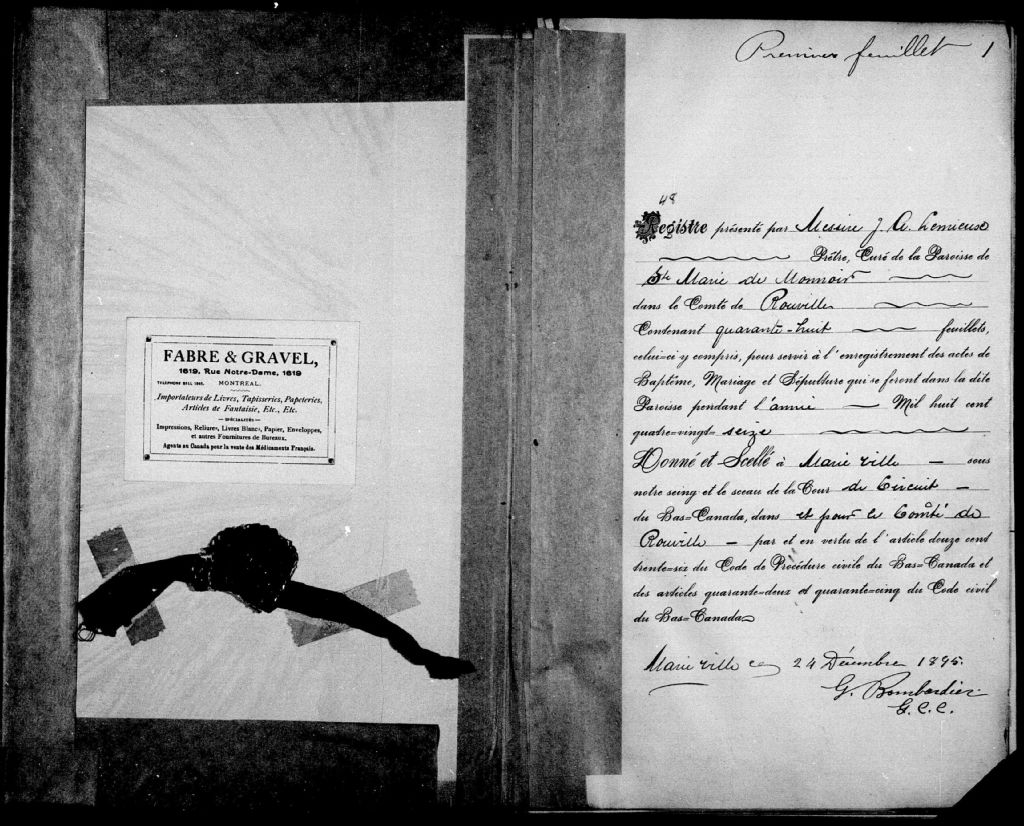 FABRE & GRAVEL,
1619, Rue Notre-Dame, 1619
MONTREAL.
Importateurs de Livres, Tapisseries, Papeteries,
Articles de Fantaisie, Etc., Etc.
SPÉCIALITÉS
Impressions, Reliures, Livres Blancs, Papier, Enveloppes,
et autres Fournitures de Bureaux.
Agents au Canada pour la vente des Médicaments Français.
Premier feuillet 1
48
Registre présenté par Messire J. A. Lemieux
Prêtre, Curé de la Paroisse de
Ste Marie de Monnoir
dans le Comté de Rouville
Contenant quarante-huit feuillets,
celui-ci y compris, pour servir à l'enregistrement des actes de
Baptême, Mariage et Sépulture qui se feront dans la dite
Paroisse pendant l'année Mil huit cent
quatre-vingt-seize
Donné et Scellé à Marieville sous
notre seing et le sceau de la Cour de Circuit
du Bas-Canada, dans et pour le Comté de
Rouville par et en vertu de l'article douze cent
trente-six du Code de Procédure civile du Bas-Canada et
des articles quarante-deux et quarante-cinq du Code civil
du Bas-Canada
Marieville ce 24 Décembre 1895.
G. Bombardier
G.C.C.